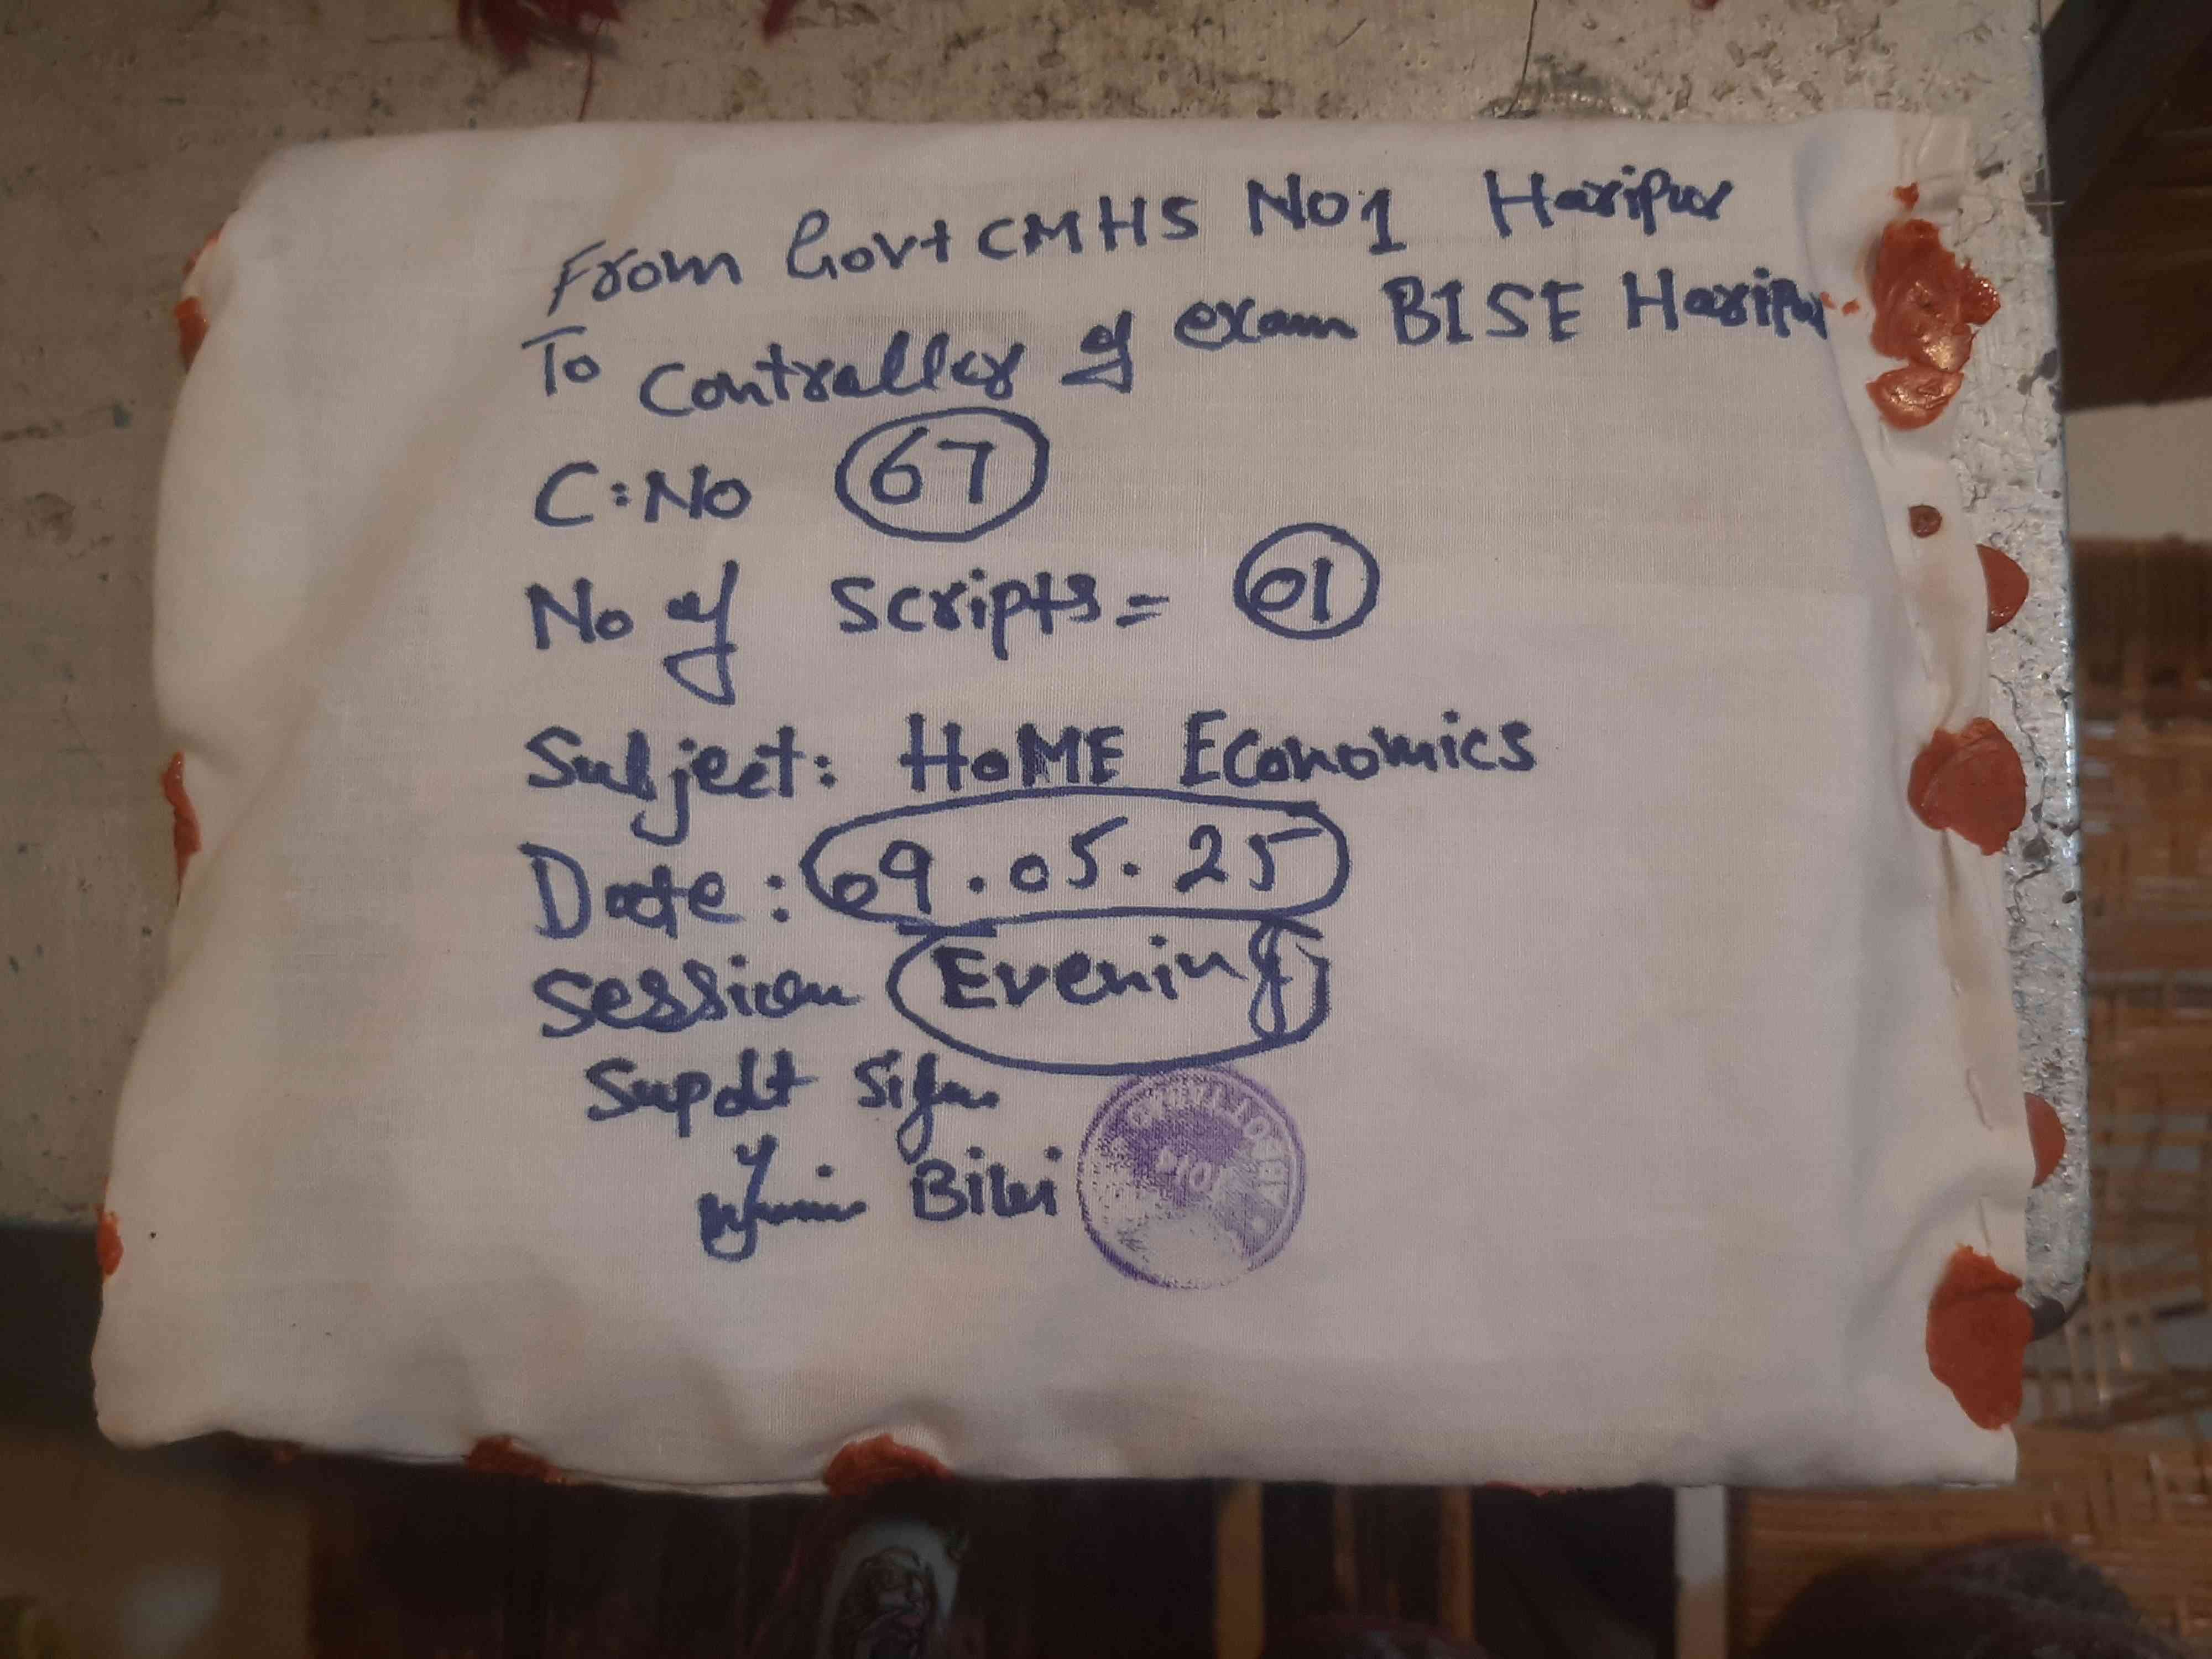 From Govt CMHS No 1 Haripur
To Controller of exam BISE Haripur
C:No 67
No of Scripts = 01
Subject: HoME Economics
Date: 09.05.25
Session Evening
Supdt Sign
Bibi